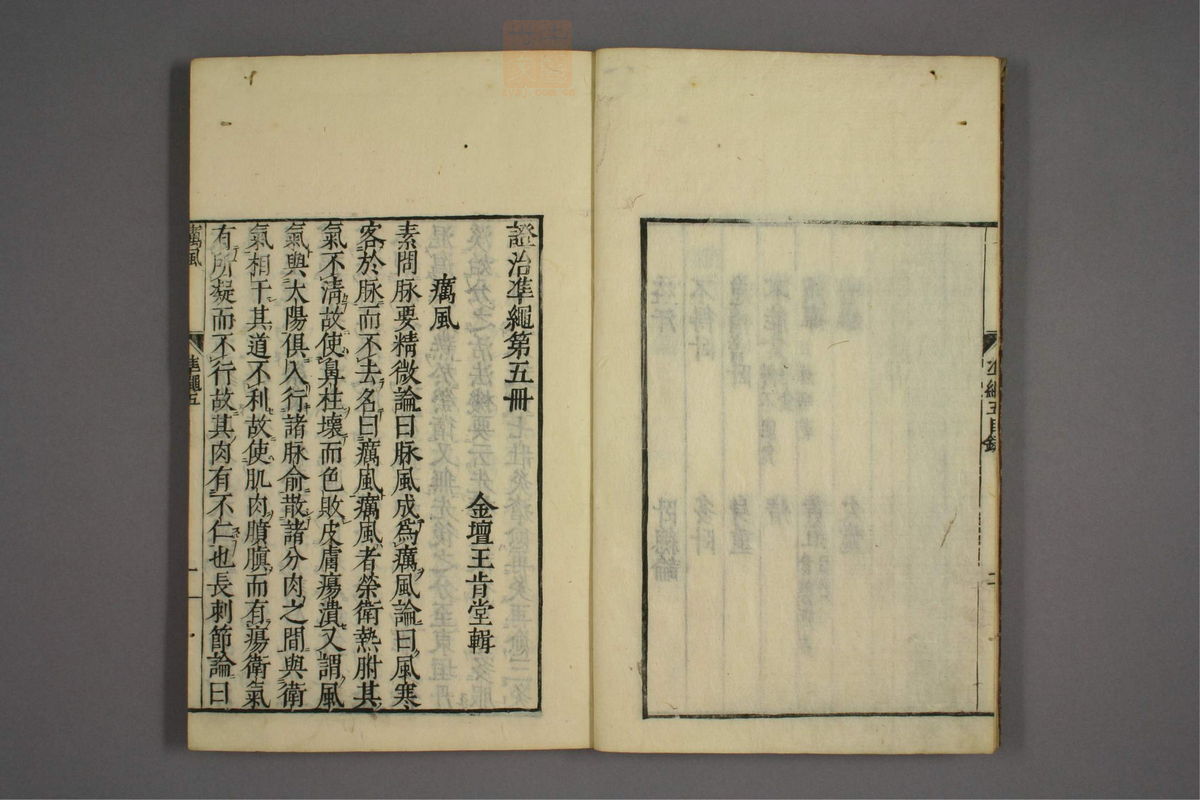 準繩五目錄
二
證治準繩第五冊
金壇王肯堂輯
癘風
素問脉要精微論曰脉風成為癘風論曰風寒
客於脉而不去名曰癘風癘風者榮衛熱胕其
氣不清故使鼻柱壞而色敗皮膚瘍潰又謂風
氣與太陽俱入行諸脉俞散諸分肉之間與衛
氣相干其道不利故使肌肉䐜而有瘍衛氣
有所凝而不行故其肉有不仁也長刺節論曰
癘風
準繩五
一